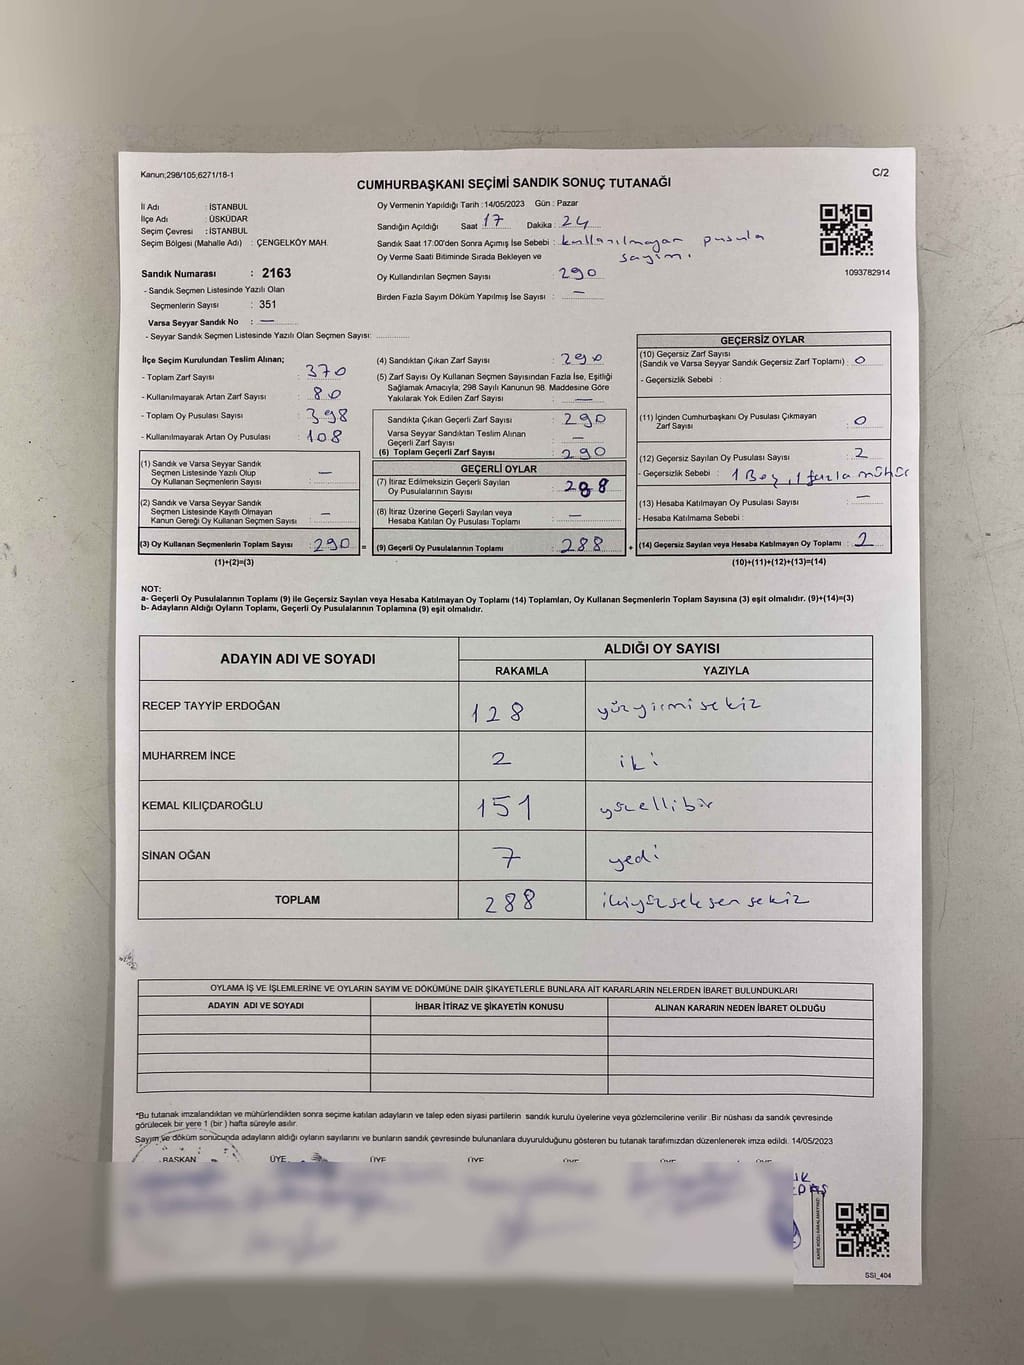 Kanun;298/105;6271/18-1
C/2
CUMHURBAŞKANI SEÇİMİ SANDIK SONUÇ TUTANAĞI
İl Adı : İSTANBUL
İlçe Adı : ÜSKÜDAR
Seçim Çevresi : İSTANBUL
Seçim Bölgesi (Mahalle Adı) : ÇENGELKÖY MAH.
Sandık Numarası : 2163
- Sandık Seçmen Listesinde Yazılı Olan
Seçmenlerin Sayısı : 351
Varsa Seyyar Sandık No : —
- Seyyar Sandık Seçmen Listesinde Yazılı Olan Seçmen Sayısı:
Oy Vermenin Yapıldığı Tarih :14/05/2023 Gün : Pazar
Sandığın Açıldığı Saat 17 Dakika : 24
Sandık Saat 17:00'den Sonra Açımış İse Sebebi : kullanılmayan pusula
sayımı.
Oy Verme Saati Bitiminde Sırada Bekleyen ve
Oy Kullandırılan Seçmen Sayısı 290
Birden Fazla Sayım Döküm Yapılmış İse Sayısı : —
1093782914
İlçe Seçim Kurulundan Teslim Alınan;
- Toplam Zarf Sayısı : 370
- Kullanılmayarak Artan Zarf Sayısı : 80
- Toplam Oy Pusulası Sayısı : 398
- Kullanılmayarak Artan Oy Pusulası : 108
(1) Sandık ve Varsa Seyyar Sandık
Seçmen Listesinde Yazılı Olup
Oy Kullanan Seçmenlerin Sayısı : —
(2) Sandık ve Varsa Seyyar Sandık
Seçmen Listesinde Kayıtlı Olmayan
Kanun Gereği Oy Kullanan Seçmen Sayısı : —
(3) Oy Kullanan Seçmenlerin Toplam Sayısı : 290 =
(1)+(2)=(3)
(4) Sandıktan Çıkan Zarf Sayısı : 290
(5) Zarf Sayısı Oy Kullanan Seçmen Sayısından Fazla İse, Eşitliği
Sağlamak Amacıyla, 298 Sayılı Kanunun 98. Maddesine Göre
Yakılarak Yok Edilen Zarf Sayısı : —
Sandıkta Çıkan Geçerli Zarf Sayısı : 290
Varsa Seyyar Sandıktan Teslim Alınan
Geçerli Zarf Sayısı : —
(6) Toplam Geçerli Zarf Sayısı : 290
GEÇERLİ OYLAR
(7) İtiraz Edilmeksizin Geçerli Sayılan
Oy Pusulalarının Sayısı : 288
(8) İtiraz Üzerine Geçerli Sayılan veya
Hesaba Katılan Oy Pusulası Toplamı : —
(9) Geçerli Oy Pusulalarının Toplamı : 288 +
GEÇERSİZ OYLAR
(10) Geçersiz Zarf Sayısı
(Sandık ve Varsa Seyyar Sandık Geçersiz Zarf Toplamı) : 0
- Geçersizlik Sebebi :
(11) İçinden Cumhurbaşkanı Oy Pusulası Çıkmayan
Zarf Sayısı : 0
(12) Geçersiz Sayılan Oy Pusulası Sayısı : 2
- Geçersizlik Sebebi : 1 Boş, 1 fazla mühür
(13) Hesaba Katılmayan Oy Pusulası Sayısı : —
- Hesaba Katılmama Sebebi :
(14) Geçersiz Sayılan veya Hesaba Katılmayan Oy Toplamı : 2
(10)+(11)+(12)+(13)=(14)
NOT:
a- Geçerli Oy Pusulalarının Toplamı (9) ile Geçersiz Sayılan veya Hesaba Katılmayan Oy Toplamı (14) Toplamları, Oy Kullanan Seçmenlerin Toplam Sayısına (3) eşit olmalıdır. (9)+(14)=(3)
b- Adayların Aldığı Oyların Toplamı, Geçerli Oy Pusulalarının Toplamına (9) eşit olmalıdır.
ADAYIN ADI VE SOYADI
ALDIĞI OY SAYISI
RAKAMLA YAZIYLA
RECEP TAYYİP ERDOĞAN 128 yüzyirmisekiz
MUHARREM İNCE 2 iki
KEMAL KILIÇDAROĞLU 151 yüzellibir
SİNAN OĞAN 7 yedi
TOPLAM 288 ikiyüzseksensekiz
OYLAMA İŞ VE İŞLEMLERİNE VE OYLARIN SAYIM VE DÖKÜMÜNE DAİR ŞİKAYETLERLE BUNLARA AİT KARARLARIN NELERDEN İBARET BULUNDUKLARI
ADAYIN ADI VE SOYADI İHBAR İTİRAZ VE ŞİKAYETİN KONUSU ALINAN KARARIN NEDEN İBARET OLDUĞU
*Bu tutanak imzalandıktan ve mühürlendikten sonra seçime katılan adayların ve talep eden siyasi partilerin sandık kurulu üyelerine veya gözlemcilerine verilir. Bir nüshası da sandık çevresinde
görülecek bir yere 1 (bir ) hafta süreyle asılır.
Sayım ve döküm sonucunda adayların aldığı oyların sayılarını ve bunların sandık çevresinde bulunanlara duyurulduğunu gösteren bu tutanak tarafımızdan düzenlenerek imza edildi. 14/05/2023
BAŞKAN ÜYE ÜYE ÜYE ÜYE ÜYE ÜYE
SSI_404